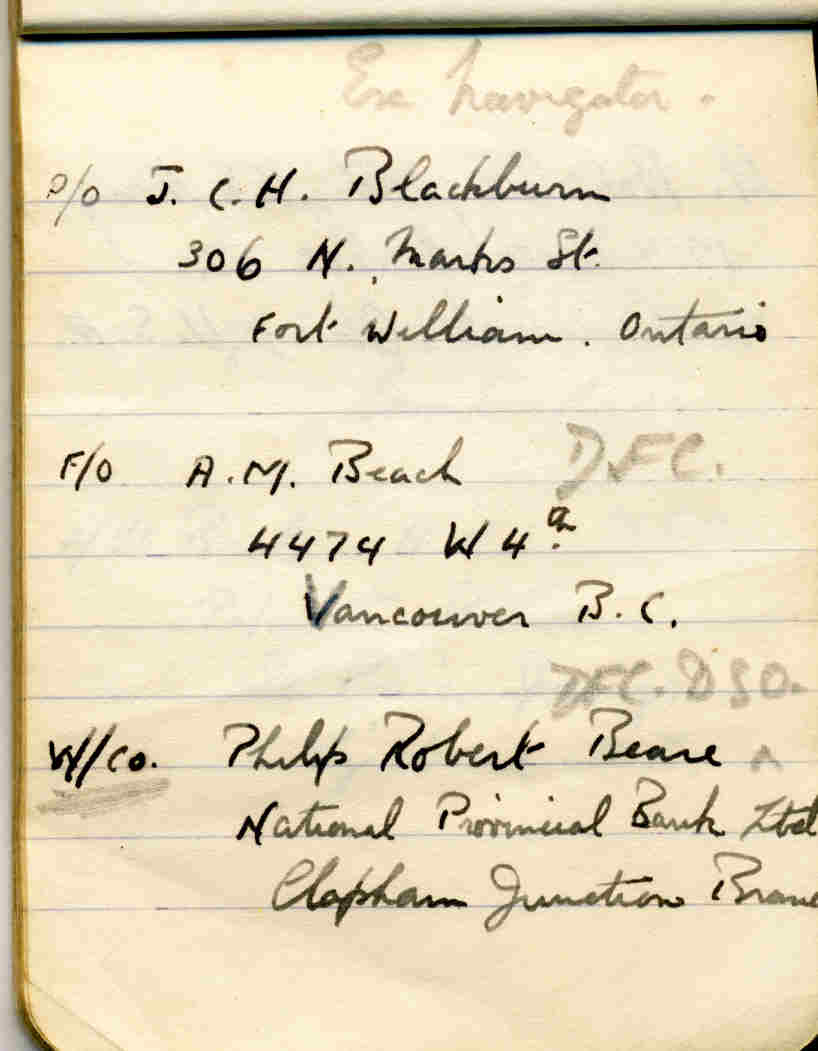 Navigator.
P/O J. C. H. Blackburn
306 N. Marks St.
Fort William. Ontario
F/O A.M. Beach DFC.
4474 W 4th
Vancouver B.C.
DFC. DSO.
W/Co. Philip Robert Beare ^
National Provincial Bank Ltd
Clapham Junction Branc